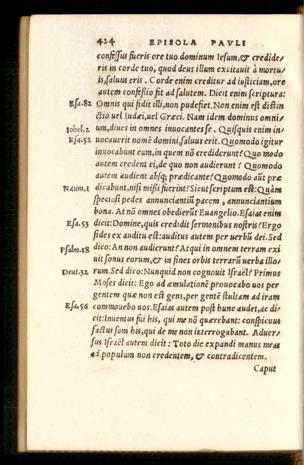 424 EPISOLA PAVLI
confessus fueris ore tuo dominum Iesum, & credide-
ris in corde tuo, quod deus illum excitauit à mortu-
is, saluus eris. Corde enim creditur ad iusticiam, ore
autem confessio fit ad salutem. Dicit enim scriptura:
Esa.82 Omnis qui fidit illi, non pudefiet. Non enim est distin
ctio uel Iudæi, uel Græci. Nam idem dominus omni-
Iohel.2 um, diues in omnes inuocantes se. Quisquis enim in-
Esa.52 uocauerit nomē domini, saluus erit. Quomodo igitur
inuocabunt eum, in quem nō crediderunt? Quo modo
autem credent ei, de quo non audierunt? Quomodo
autem audient absq; prædicante? Quomodo aūt præ
Naum.1 dicabunt, nisi missi fuerint? Sicut scriptum est: Quàm
speciosi pedes annunciantiū pacem, annunciantium
bona. At nō omnes obedierūt Euangelio. Esaias enim
Esa.53 dicit: Domine, quis credidit sermonibus nostris? Ergo
fides ex auditu est: auditus autem per uerbū dei. Sed
Psalm.18 dico: An non audierunt? Atqui in omnem terram exi
uit sonus eorum, & in fines orbis terrarū uerba illo-
Deut.32 rum. Sed dico: Nunquid non cognouit Israël? Primus
Moses dicit: Ego ad æmulationē prouocabo uos per
gentem quæ non est gens, per gentē stultam ad iram
Esa.56 commouebo uos. Esaias autem post hunc audet, ac di-
cit: Inuentus fui his, qui me nō quærebant: conspicuus
factus sum his, qui de me non interrogabant. Aduer-
sus Israël autem dicit: Toto die expandi manus meas
ad populum non credentem, & contradicentem.
Caput